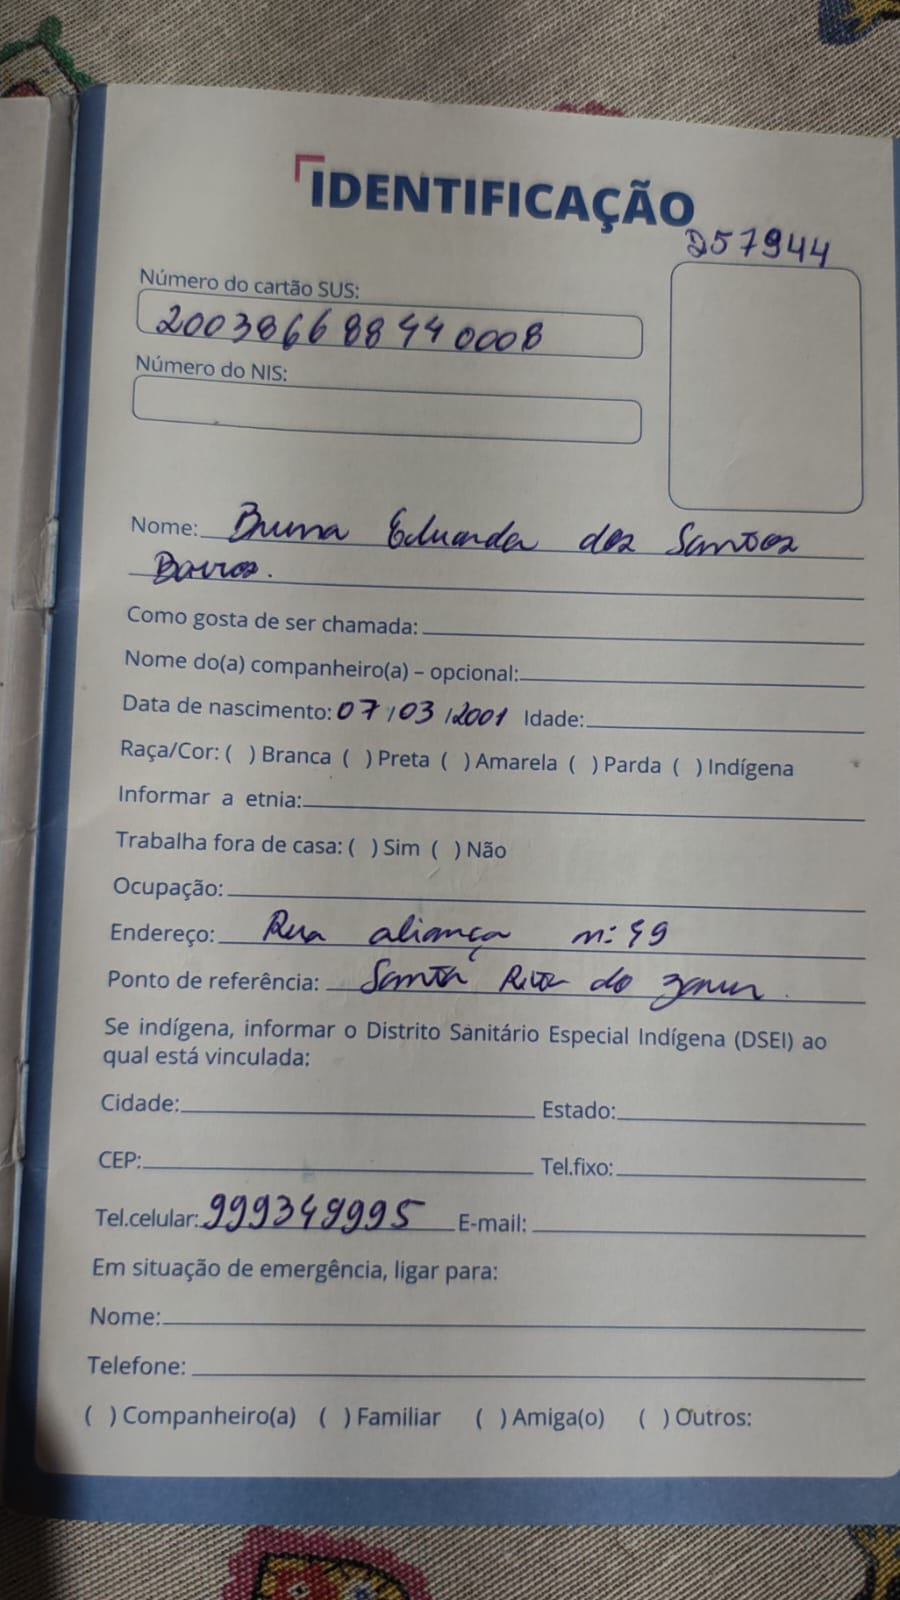 IDENTIFICAÇÃO
257944
Número do cartão SUS:
200386688440008
Número do NIS:
Nome: Bruna Eduarda dos Santos
Barros.
Como gosta de ser chamada:
Nome do(a) companheiro(a) – opcional:
Data de nascimento: 07/03/2001 Idade:
Raça/Cor: ( ) Branca ( ) Preta ( ) Amarela ( ) Parda ( ) Indígena
Informar a etnia:
Trabalha fora de casa: ( ) Sim ( ) Não
Ocupação:
Endereço: Rua aliança n: 49
Ponto de referência: Santa Rita do
Se indígena, informar o Distrito Sanitário Especial Indígena (DSEI) ao
qual está vinculada:
Cidade: Estado:
CEP: Tel.fixo:
Tel.celular: 999349995 E-mail:
Em situação de emergência, ligar para:
Nome:
Telefone:
( ) Companheiro(a) ( ) Familiar ( ) Amiga(o) ( ) Outros: